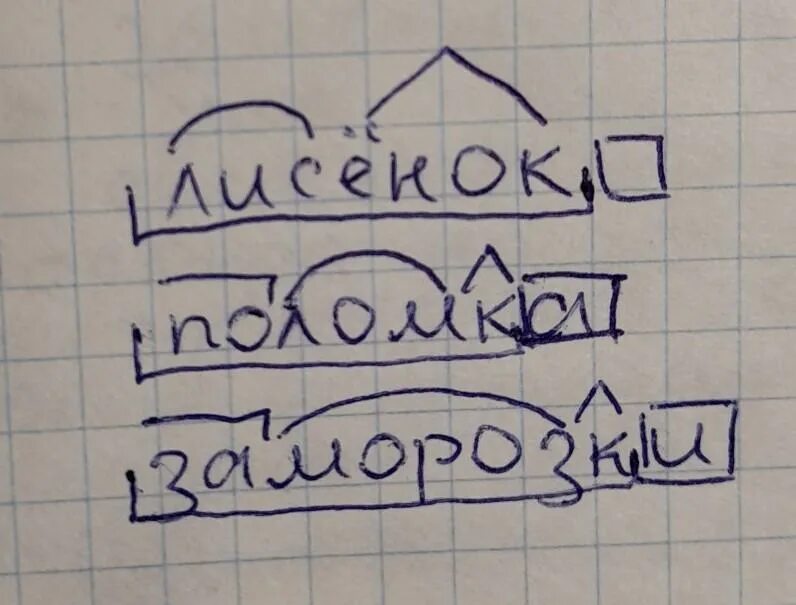 лисёнок
поломка
заморозки